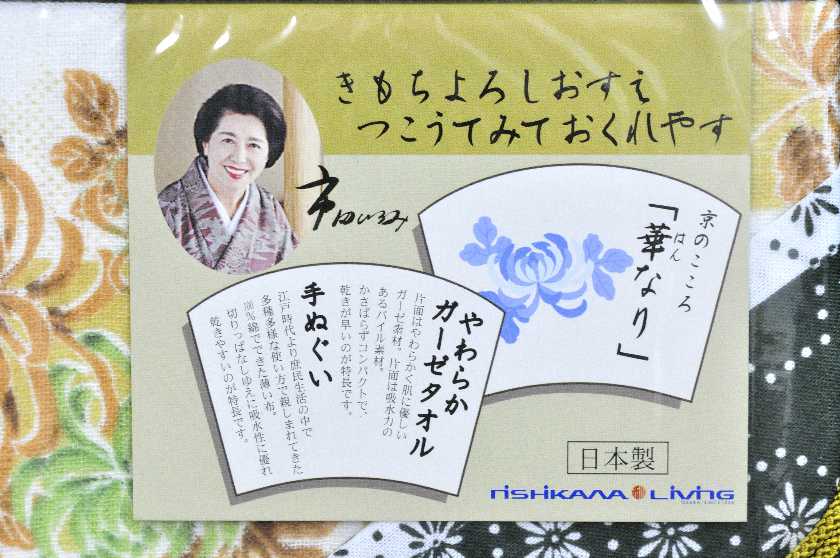 きもちよろしおすえ
つこうてみておくれやす
市田ひろみ
京のこころ
「華なり」
はん
やわらか
ガーゼタオル
片面はやわらかく肌に優しい
ガーゼ素材。片面は吸水力の
あるパイル素材。
かさばらずコンパクトで、
乾きが早いのが特長です。
手ぬぐい
江戸時代より庶民生活の中で
多種多様な使い方で親しまれてきた
100%綿でできた薄い布。
切りっぱなしゆえに吸水性に優れ
乾きやすいのが特長です。
日本製
nishikawa Living